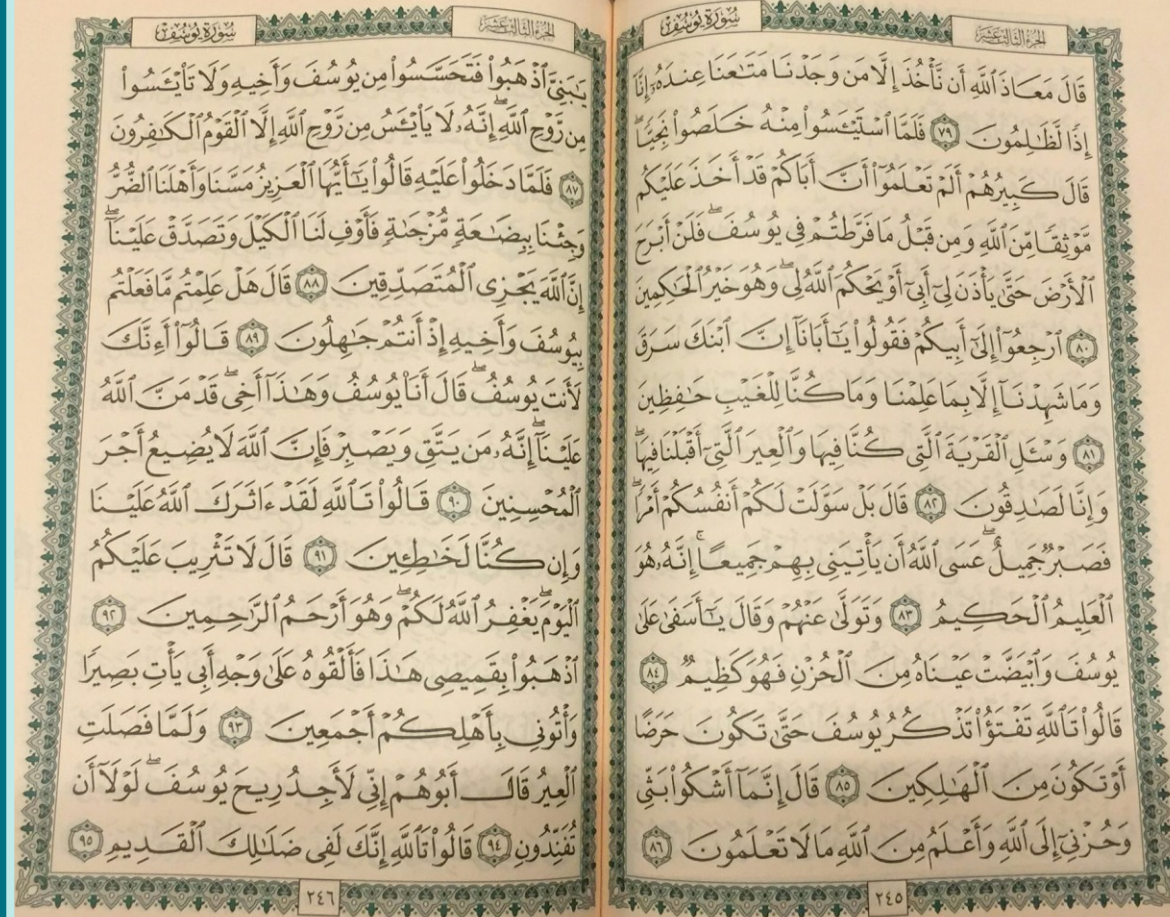 سُورَةُ يُوسُفَ
الجُزءُ الثَّالِثَ عَشَرَ
قَالَ مَعَاذَ ٱللَّهِ أَن نَّأْخُذَ إِلَّا مَن وَجَدْنَا مَتَٰعَنَا عِندَهُۥٓ إِنَّآ
إِذًا لَّظَٰلِمُونَ ٧٩ فَلَمَّا ٱسْتَيْـَٔسُوا۟ مِنْهُ خَلَصُوا۟ نَجِيًّا ۖ
قَالَ كَبِيرُهُمْ أَلَمْ تَعْلَمُوٓا۟ أَنَّ أَبَاكُمْ قَدْ أَخَذَ عَلَيْكُم
مَّوْثِقًا مِّنَ ٱللَّهِ وَمِن قَبْلُ مَا فَرَّطتُمْ فِى يُوسُفَ ۖ فَلَنْ أَبْرَحَ
ٱلْأَرْضَ حَتَّىٰ يَأْذَنَ لِىٓ أَبِىٓ أَوْ يَحْكُمَ ٱللَّهُ لِى ۖ وَهُوَ خَيْرُ ٱلْحَٰكِمِينَ
٨٠ ٱرْجِعُوٓا۟ إِلَىٰٓ أَبِيكُمْ فَقُولُوا۟ يَٰٓأَبَانَآ إِنَّ ٱبْنَكَ سَرَقَ
وَمَا شَهِدْنَآ إِلَّا بِمَا عَلِمْنَا وَمَا كُنَّا لِلْغَيْبِ حَٰفِظِينَ
٨١ وَسْـَٔلِ ٱلْقَرْيَةَ ٱلَّتِى كُنَّا فِيهَا وَٱلْعِيرَ ٱلَّتِىٓ أَقْبَلْنَا فِيهَا ۖ
وَإِنَّا لَصَٰدِقُونَ ٨٢ قَالَ بَلْ سَوَّلَتْ لَكُمْ أَنفُسُكُمْ أَمْرًا ۖ
فَصَبْرٌ جَمِيلٌ ۖ عَسَى ٱللَّهُ أَن يَأْتِيَنِى بِهِمْ جَمِيعًا ۚ إِنَّهُۥ هُوَ
ٱلْعَلِيمُ ٱلْحَكِيمُ ٨٣ وَتَوَلَّىٰ عَنْهُمْ وَقَالَ يَٰٓأَسَفَىٰ عَلَىٰ
يُوسُفَ وَٱبْيَضَّتْ عَيْنَاهُ مِنَ ٱلْحُزْنِ فَهُوَ كَظِيمٌ ٨٤
قَالُوا۟ تَٱللَّهِ تَفْتَؤُا۟ تَذْكُرُ يُوسُفَ حَتَّىٰ تَكُونَ حَرَضًا
أَوْ تَكُونَ مِنَ ٱلْهَٰلِكِينَ ٨٥ قَالَ إِنَّمَآ أَشْكُوا۟ بَثِّى
وَحُزْنِىٓ إِلَى ٱللَّهِ وَأَعْلَمُ مِنَ ٱللَّهِ مَا لَا تَعْلَمُونَ ٨٦
٢٤٥
سُورَةُ يُوسُفَ
الجُزءُ الثَّالِثَ عَشَرَ
يَٰبَنِىَّ ٱذْهَبُوا۟ فَتَحَسَّسُوا۟ مِن يُوسُفَ وَأَخِيهِ وَلَا تَا۟يْـَٔسُوا۟
مِن رَّوْحِ ٱللَّهِ ۖ إِنَّهُۥ لَا يَا۟يْـَٔسُ مِن رَّوْحِ ٱللَّهِ إِلَّا ٱلْقَوْمُ ٱلْكَٰفِرُونَ
٨٧ فَلَمَّا دَخَلُوا۟ عَلَيْهِ قَالُوا۟ يَٰٓأَيُّهَا ٱلْعَزِيزُ مَسَّنَا وَأَهْلَنَا ٱلضُّرُّ
وَجِئْنَا بِبِضَٰعَةٍ مُّزْجَىٰةٍ فَأَوْفِ لَنَا ٱلْكَيْلَ وَتَصَدَّقْ عَلَيْنَآ ۖ
إِنَّ ٱللَّهَ يَجْزِى ٱلْمُتَصَدِّقِينَ ٨٨ قَالَ هَلْ عَلِمْتُم مَّا فَعَلْتُم
بِيُوسُفَ وَأَخِيهِ إِذْ أَنتُمْ جَٰهِلُونَ ٨٩ قَالُوٓا۟ أَءِنَّكَ
لَأَنتَ يُوسُفُ ۖ قَالَ أَنَا۠ يُوسُفُ وَهَٰذَآ أَخِى ۖ قَدْ مَنَّ ٱللَّهُ
عَلَيْنَآ ۖ إِنَّهُۥ مَن يَتَّقِ وَيَصْبِرْ فَإِنَّ ٱللَّهَ لَا يُضِيعُ أَجْرَ
ٱلْمُحْسِنِينَ ٩٠ قَالُوا۟ تَٱللَّهِ لَقَدْ ءَاثَرَكَ ٱللَّهُ عَلَيْنَا
وَإِن كُنَّا لَخَٰطِـِٔينَ ٩١ قَالَ لَا تَثْرِيبَ عَلَيْكُمُ
ٱلْيَوْمَ ۖ يَغْفِرُ ٱللَّهُ لَكُمْ ۖ وَهُوَ أَرْحَمُ ٱلرَّٰحِمِينَ ٩٢
ٱذْهَبُوا۟ بِقَمِيصِى هَٰذَا فَأَلْقُوهُ عَلَىٰ وَجْهِ أَبِى يَأْتِ بَصِيرًا
وَأْتُونِى بِأَهْلِكُمْ أَجْمَعِينَ ٩٣ وَلَمَّا فَصَلَتِ
ٱلْعِيرُ قَالَ أَبُوهُمْ إِنِّى لَأَجِدُ رِيحَ يُوسُفَ ۖ لَوْلَآ أَن
تُفَنِّدُونِ ٩٤ قَالُوا۟ تَٱللَّهِ إِنَّكَ لَفِى ضَلَٰلِكَ ٱلْقَدِيمِ ٩٥
٢٤٦